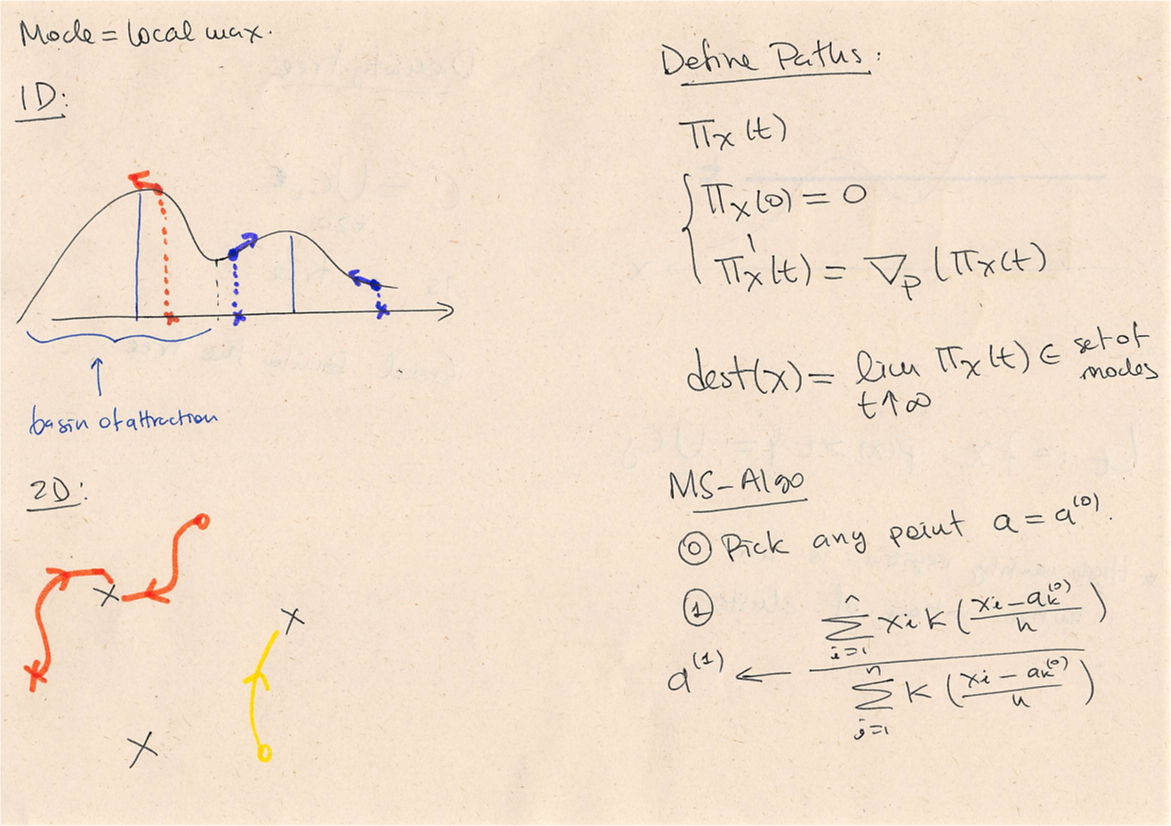 Mode = local max.
1D:
basin of attraction
2D:
Define Paths:
Πx(t)
{ Πx(0) = 0
Πx'(t) = ∇p (Πx(t)
dest(x) = lim Πx(t) ∈ set of modes
t↑∞
MS-Algo
⓪ Pick any point a = a⁽⁰⁾.
①
a⁽¹⁾ ← ∑ᵢ₌₁ⁿ xi K (xi - ak⁽⁰⁾ / h) / ∑ⱼ₌₁ⁿ K (xi - ak⁽⁰⁾ / h)